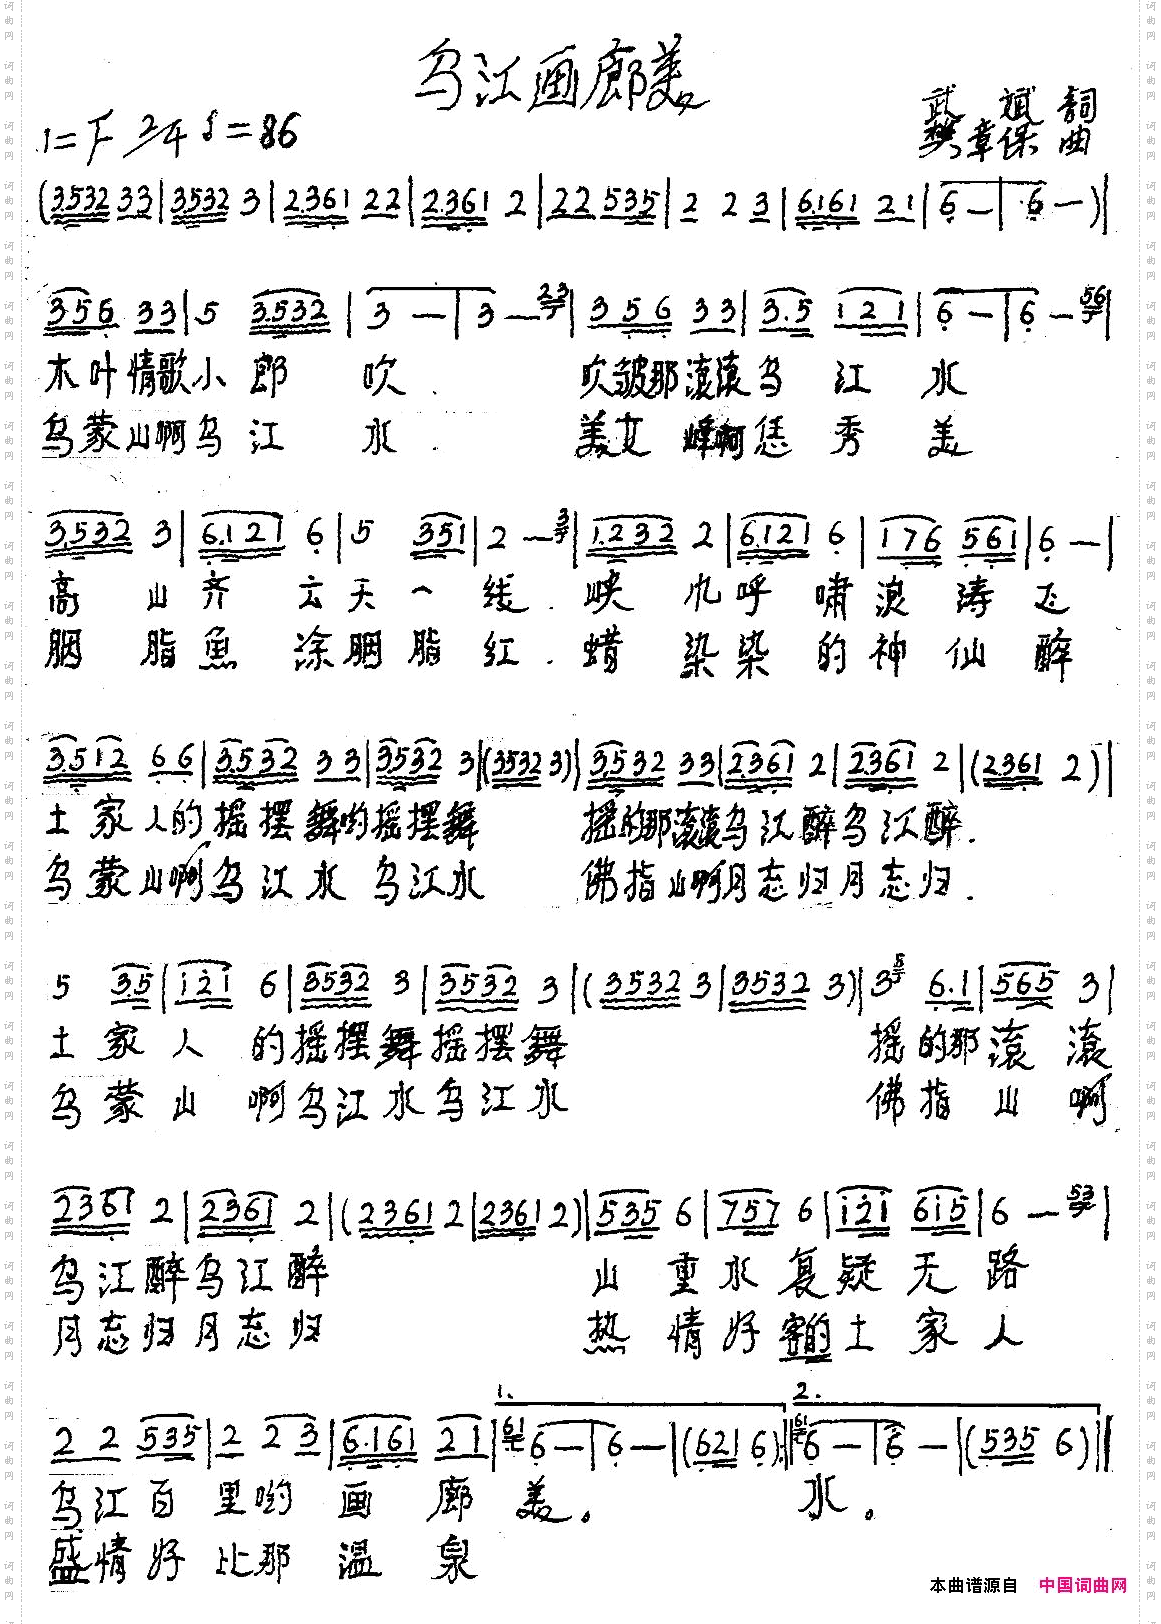 乌江画廊美
武斌 詞
1=F 2/4 ♩=86
樊章保 曲
(3.532 33|3532 3|2.361 22|2.361 2|22 535|2 2 3|6.161 21|6 —|6 —)|
356 33|5 3.532|3 —|3 — 23|356 33|3.5 121|6 —|6 — 56|
木叶情歌小郎 吹. 吹皱那滚滚乌江水
乌蒙山啊乌江水. 美女峰啊恁秀美
3.532 3|6.121 6|5 351|2 — 3|1.232 2|6.121 6|176 561|6 —|
高山齐云天一线. 峡风呼啸浪涛飞
胭脂魚涂胭脂红. 蜡染染的神仙醉
3.512 66|3.532 33|3532 3|(3532 3)|3.532 33|2361 2|2.361 2|(2361 2)|
土家人的摇摆舞哟摇摆舞 摇的那滚滚乌江醉乌江醉.
乌蒙山啊乌江水 乌江水 佛指山啊月忘归月忘归.
5 3.5|121 6|3532 3|3532 3|(3532 3|3532 3)|3 5 6.1|565 3|
土家人的摇摆舞摇摆舞 摇的那滚滚
乌蒙山啊乌江水乌江水 佛指山啊
2361 2|2361 2|(2361 2|2361 2)|535 6|757 6|121 615|6 — 53|
乌江醉乌江醉 山重水复疑无路
月忘归月忘归 热情好客的土家人
1. 2.
2 2 535|2 2 3|6.161 21|61 6 —|6 —|(621 6):|61 6 —|6 —|(535 6)|
乌江百里哟画廊美。 水。
盛情好比那温泉
本曲谱源自 中国词曲网